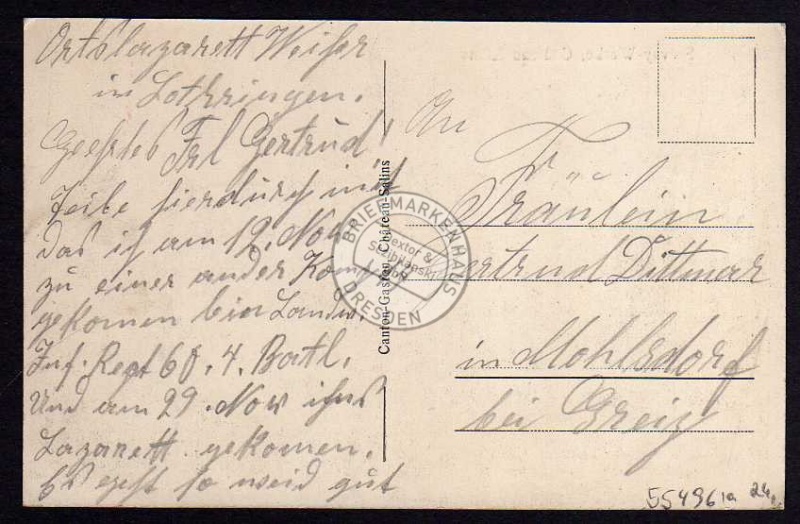 Ortslazarett Weiher
in Lothringen.
Geehrtes Frl Gertrud!
Teile hierdurch mit
das ich am 12. Nov
zu einer ander Kom
gekomen bin Landw.
Inf. Regt 60. 4. Batl.
Und am 29. Nov ins
Lazarett gekomen.
Es geht so weid gut
Canton-Gaston, Château-Salins
An
Fräulein
Gertrud Dittmar
in Mohlsdorf
bei Greiz
BRIEFMARKENHAUS
DRESDEN
55496 1a 24